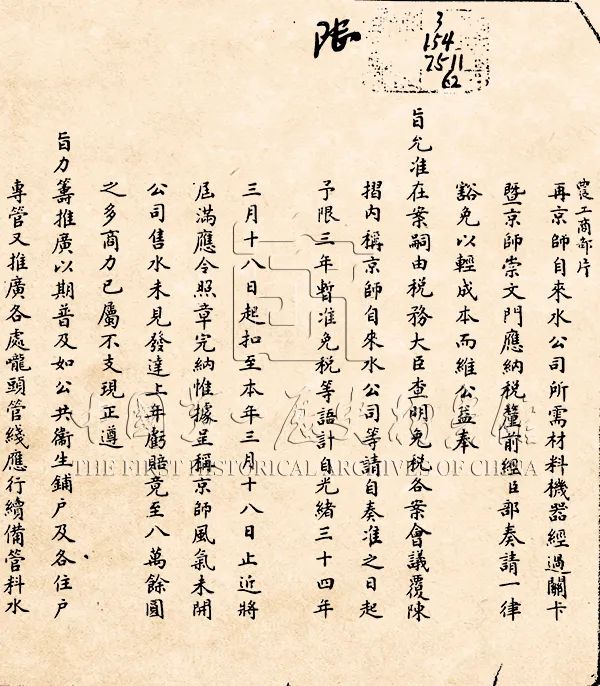 3
154
7511
62
農工商部片
再京師自來水公司所需材料機器經過關卡
暨京師崇文門應納稅釐前經臣部奏請一律
豁免以輕成本而維公益奉
旨允准在案嗣由稅務大臣查明免稅各案會議覆陳
摺內稱京師自來水公司等請自奏准之日起
予限三年暫准免稅等語計自光緒三十四年
三月十八日起扣至本年三月十八日止近將
屆滿應令照章完納惟據呈稱京師風氣未開
公司售水未見發達上年虧賠竟至八萬餘圓
之多商力已屬不支現正遵
旨力籌推廣以期普及如公共衞生鋪户及各住户
專管又推廣各處嚨頭管綫應行續備管料水
中国第一历史档案馆
THE FIRST HISTORICAL ARCHIVES OF CHINA